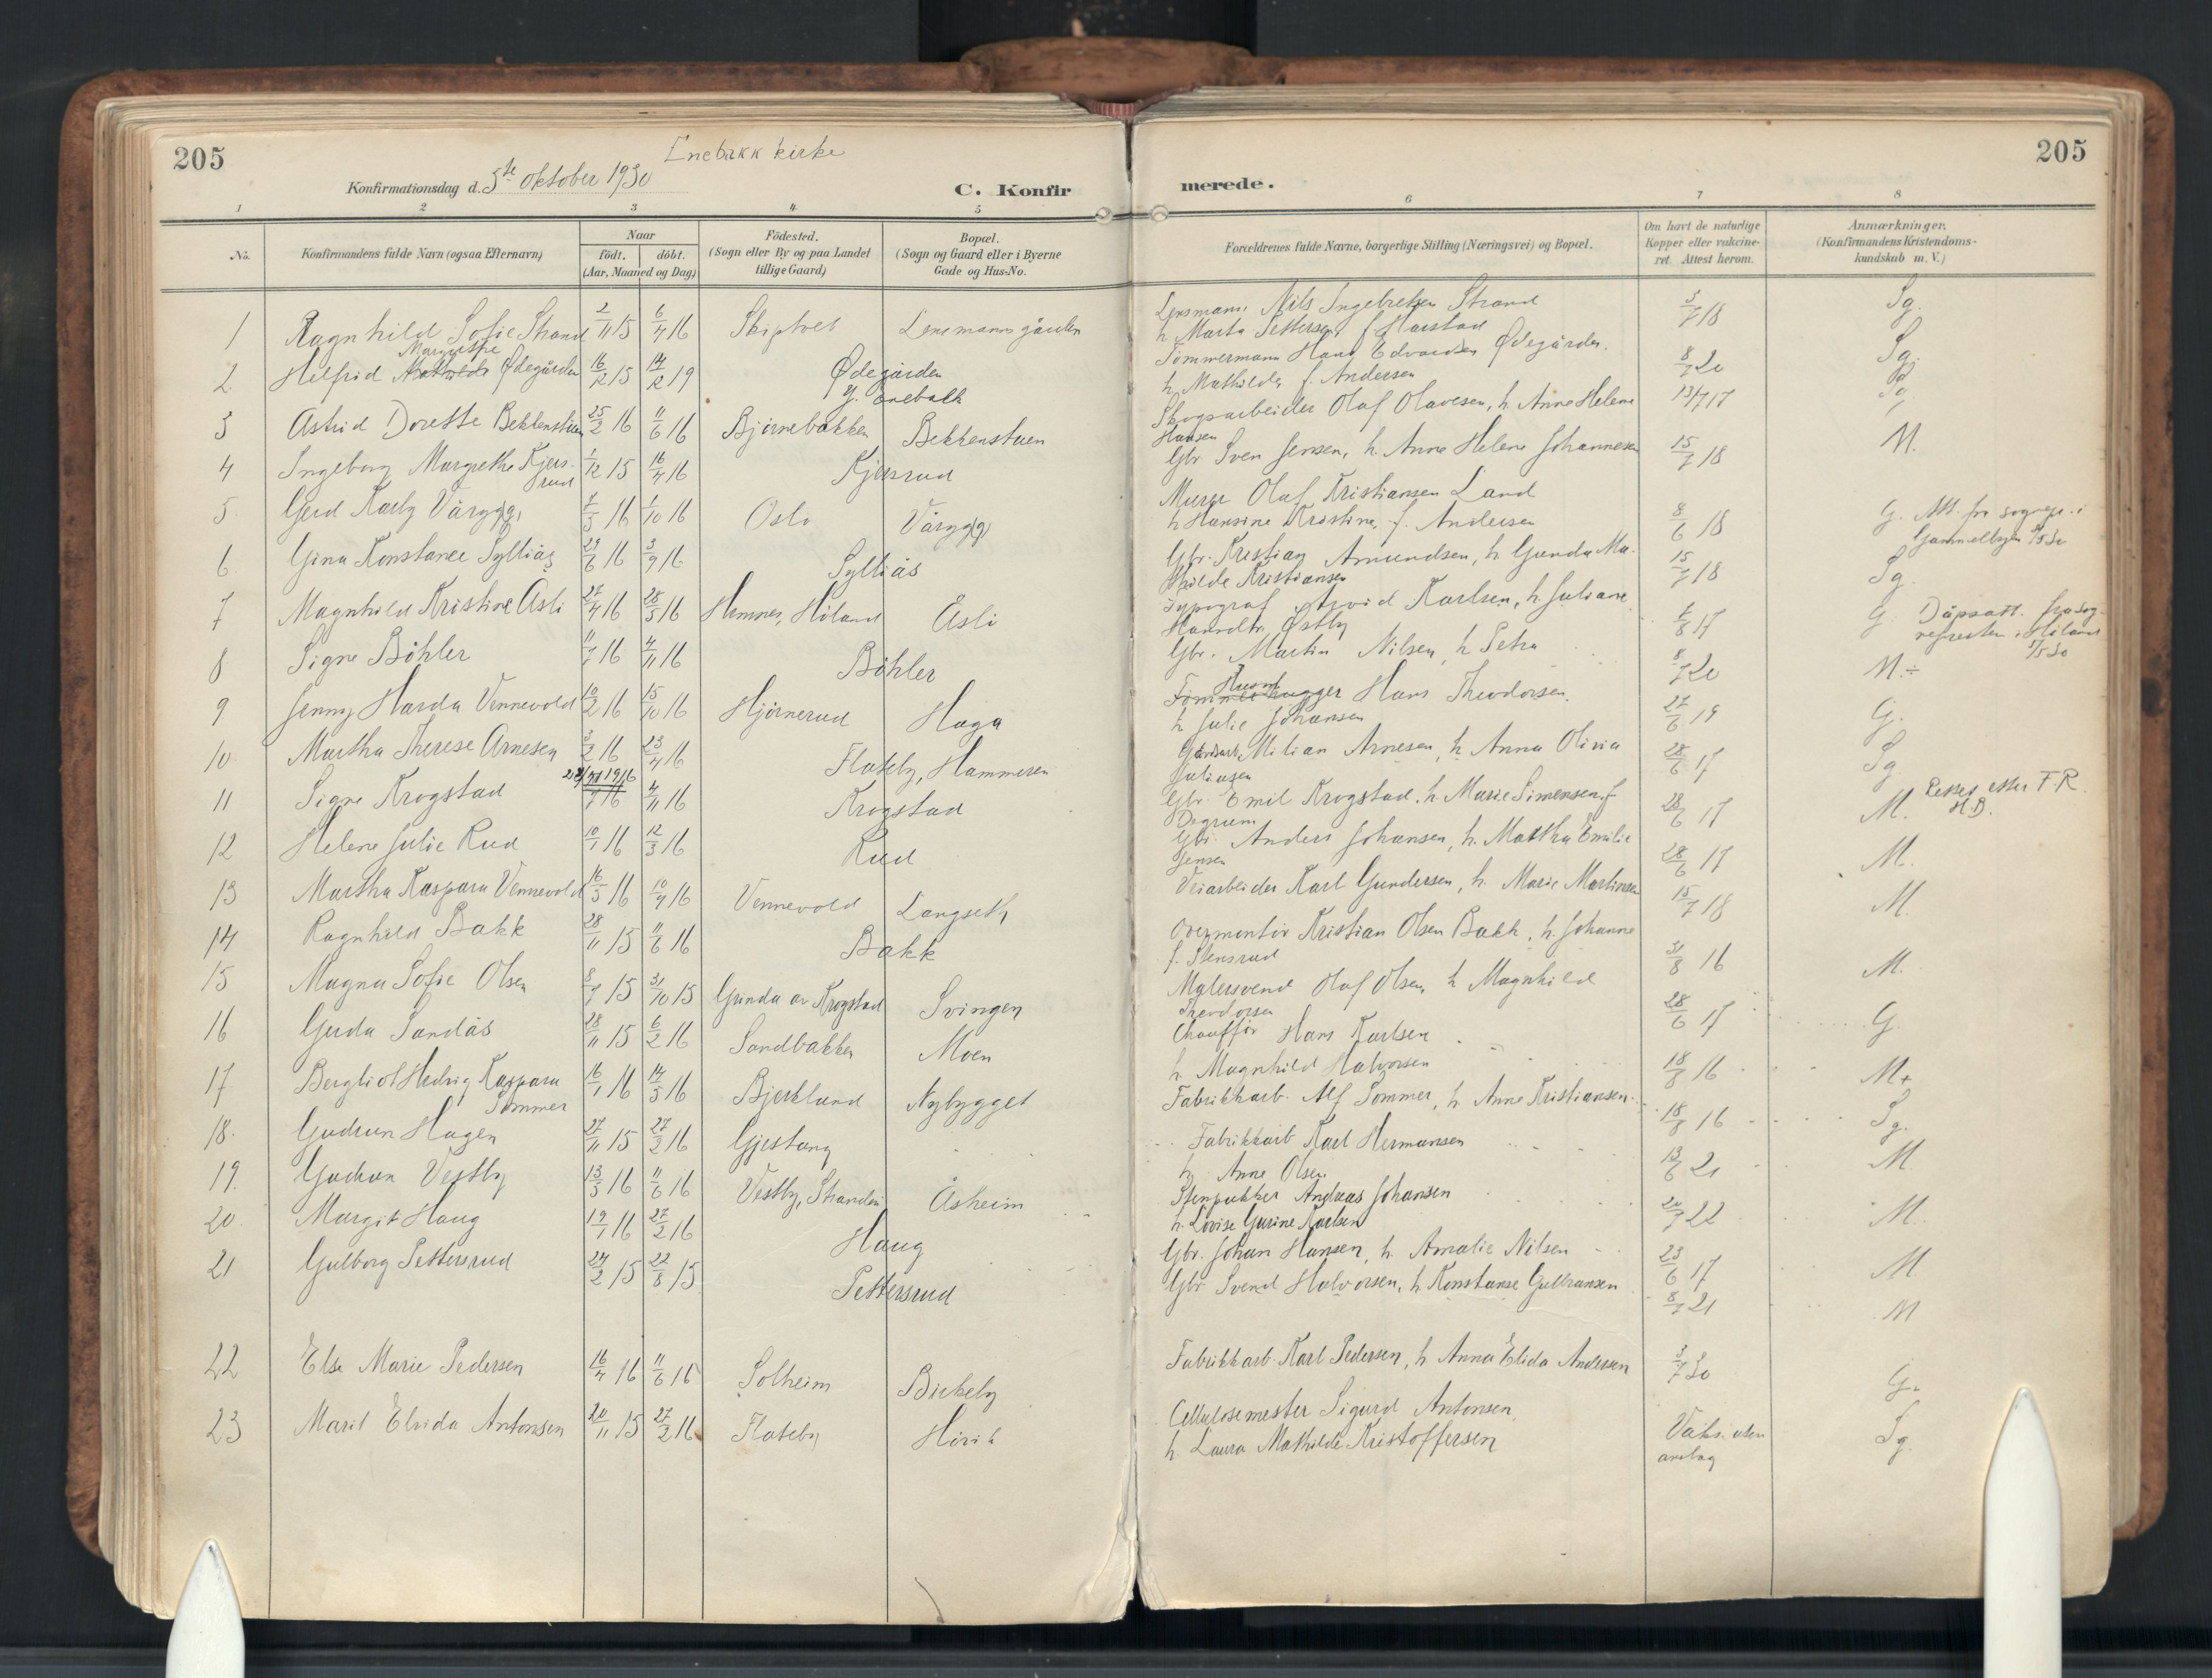 205
Enebakk kirke
205
Konfirmationsdag d. 5te oktober 1930
C. Konfir
merede.
1 2 3 4 5 6 7 8
No.
Konfirmandens fulde Navn (ogsaa Efternavn)
Naar
født. døbt.
(Aar, Maaned og Dag)
Fødested.
(Sogn eller By og paa Landet
tillige Gaard)
Bopæl.
(Sogn og Gaard eller i Byerne
Gade og Hus-No.
Forældrenes fulde Navne, borgerlige Stilling (Næringsvei) og Bopæl.
Om havt de naturlige
Kopper eller vakcine-
ret. Attest herom.
Anmærkninger.
(Konfirmandens Kristendoms-
kundskab m. V.)
1 Ragnhild Sofie Strand 2/11 15 6/4 16 Skiptvet Lensmannsgården
Lensmann Nils Ingebretsen Strand
h. Marta Pettersen f. Harstad
3/7 18 Sg.
Margrethe
2 Helfrid Mathilde Ødegården 16/12 15 14/12 19 Ødegården
Y. Enebakk
Tømmermann Hans Edvardsen Ødegården.
h. Mathilde f. Andersen
8/7 20 Sg.
3 Astrid Dorette Bekkenstuen 25/2 16 11/6 16 Bjørnebakken Bekkenstuen
Skogsarbeider Olaf Olavesen, h. Anne Helene
Hansen
13/7 17 Sg
4 Ingeborg Margrethe Kjers-
rud
1/12 15 16/4 16 Kjersrud
Gbr Sven Jensen, h. Anne Helene Johannesen
15/7 18 M.
5 Gerd Karly Vårgygg 8/5 16 1/10 16 Oslo Vårgygg
Murer Olaf Kristiansen Land
h Hansine Kristine, f. Andersen
8/6 18 G. Att. fra sognepr. i
Gamlebyen 3/5 30
6 Gina Konstance Sylliås 29/6 16 3/9 16 Sylliås
Gbr. Kristian Amundsen, h Gunda Ma-
thilde Kristiansen
15/7 18 Sg.
7 Magnhild Kristine Åsli 27/4 16 28/5 16 Hemnes, Høland Åsli
Typograf Arvid Karlsen, h. Juliane
Østby
17 G. Dåpsatt. fra sog-
nepresten i Høland
8 Signe Bøhler 11/7 16 4/11 16 Bøhler
Gbr. Martin Nilsen, h Petra
8/7 20 M.÷
9 Jenny Harda Vennevold 10/2 16 15/10 16 Hjørnerud Haga
Husm.
Tømmerhugger Hans Theodorsen.
h Julie Johansen
27/6 19 G.
10 Martha Therese Arnesen 3/2 16 23/4 16 Flateby, Hammeren
Gårdsarb. Milian Arnesen, h Anna Olivia
Juliusen
28/6 17 Sg
11 Signe Krogstad 7 16 4/11 16 Krogstad
Gbr. Emil Krogstad, h. Marie Simensen, f
Degrum
28/6 17 M. Leses etter F.R.
H.B.
12 Helene Julie Rud 10/1 16 12/3 16 Rud
Gbr. Anders Johansen, h. Martha Emilie
Jensen
28/6 17 M.
13 Martha Kaspara Vennevold 16/5 16 10/9 16 Vennevold Langseth
Veiarbeider Karl Gundersen, h. Marie Martinsen
15/7 18 M.
14 Ragnhild Bakk 28/11 15 11/6 16 Bakk
Overmontør Kristian Olsen Bakk, h. Johanne
f. Stensrud
31/8 16 M.
15 Magna Sofie Olsen 8/7 15 31/10 15 Grinda av Krogstad Svingen
Malersvend Olaf Olsen, h Magnhild
Theodorsen
28/6 17 G
16 Gerda Sandås 28/11 15 6/2 16 Sandbakken Moen
Chauffør Hans Karlsen
h. Magnhild Halvorsen
18/8 16 M+
17 Bergliot Hedvig Kaspara
Sommer
16/1 16 14/5 16 Bjerklund Nybygget
Fabrikkarb. Alf Sommer, h. Anne Kristiansen
18/8 16 Sg.
18 Gudrun Hagen 27/11 15 27/2 16 Gjestang
Fabrikkarb Karl Hermansen
h. Anne Olsen
13/6 21 M
19 Gudrun Vestby 13/5 16 11/6 16 Vestby, Stranden Åsheim
Stenpukker Andreas Johansen
h. Lovise Gurine Karlsen
20/7 22 M.
20 Margit Haug 19/1 16 27/2 16 Haug
Gbr. Johan Hansen, h. Amalie Nilsen
23/6 17 M
21 Gulborg Pettersrud 24/2 15 22/8 15 Pettersrud
Gbr Svend Halvorsen, h Konstanse Gulbransen
8/7 21 M
22 Else Marie Pedersen 16/4 16 11/6 16 Solheim Birkeby
Fabrikkarb. Karl Pedersen, h Anna Elida Andersen
3/7 30 G.
23 Marit Elvida Antonsen 20/11 15 27/2 16 Flateby Hørik
Cellulosemester Sigurd Antonsen,
h. Laura Mathilde Kristoffersen
Vaks. uten
anslag
Sg.